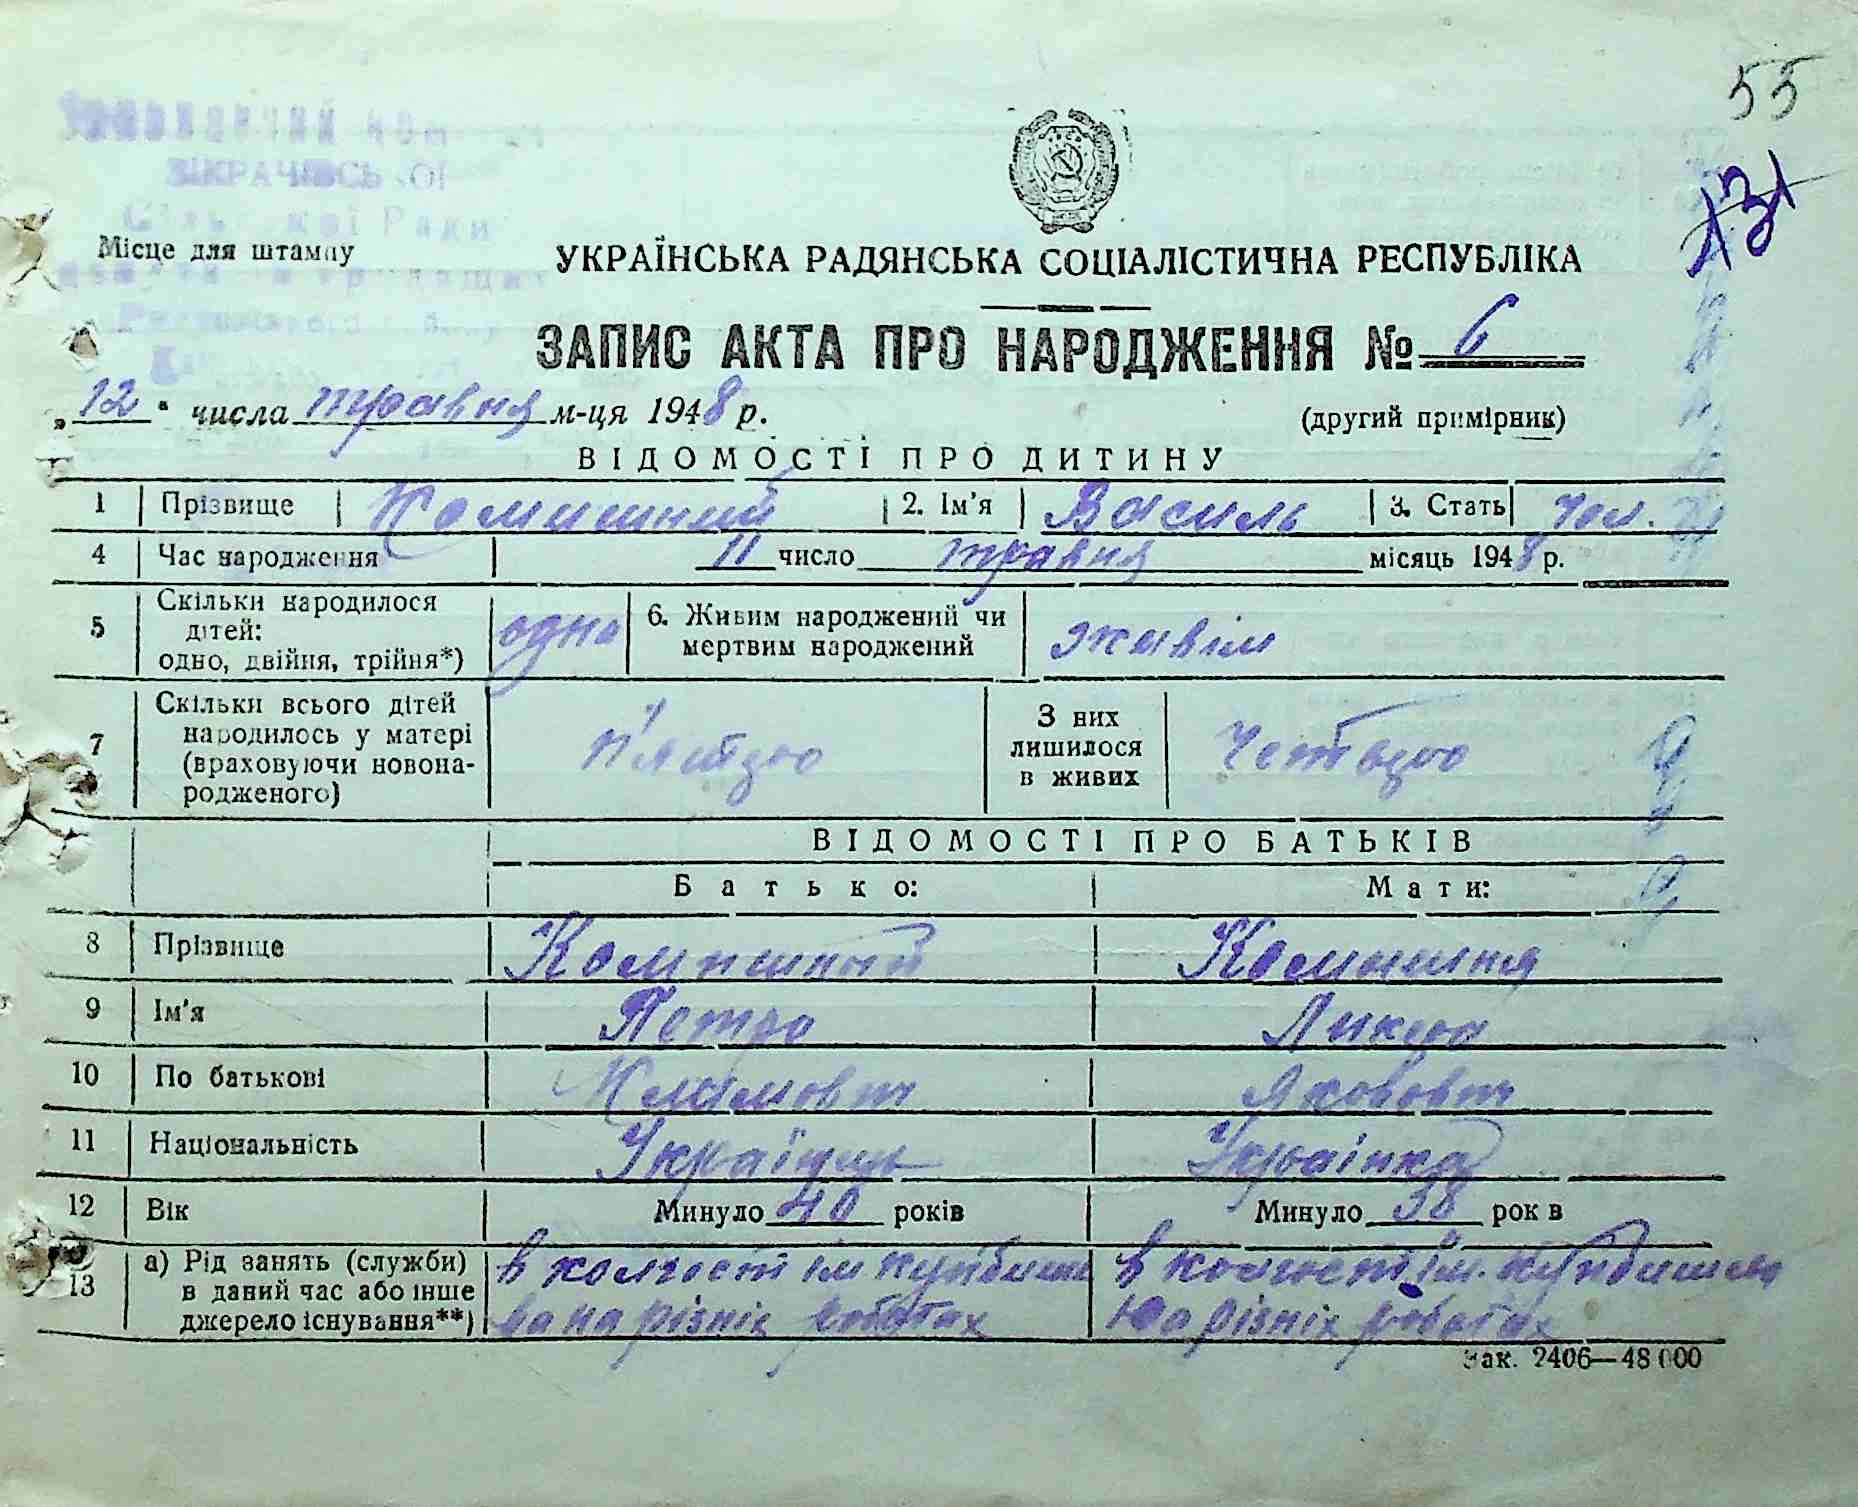 55
131
ЗІКРАЧІВСЬКОЇ
Сільської Ради
Місце для штампу
УКРАЇНСЬКА РАДЯНСЬКА СОЦІАЛІСТИЧНА РЕСПУБЛІКА
ЗАПИС АКТА ПРО НАРОДЖЕННЯ № 6
„12“ числа травня м-ця 1948 р.
(другий примірник)
ВІДОМОСТІ ПРО ДИТИНУ
1 Прізвище Комишний 2. Ім'я Василь 3. Стать чол.
4 Час народження 11 число травня місяць 1948 р.
5 Скільки народилося дітей: одно, двійня, трійня*) одно 6. Живим народжений чи мертвим народжений живім
7 Скільки всього дітей народилось у матері (враховуючи новонародженого) п'ятеро З них лишилося в живих четверо
ВІДОМОСТІ ПРО БАТЬКІВ
Батько: Мати:
8 Прізвище Комишний Комишня
9 Ім'я Петро Ликера
10 По батькові Климовт Якововт
11 Національність Українць Українка
12 Вік Минуло 40 років Минуло 38 років
13 а) Рід занять (служби) в даний час або інше джерело існування**) в колгості ім куйбишева на різніх роботах в колгості ім. Куйбишева на різніх роботах
Зак. 2406—48 000